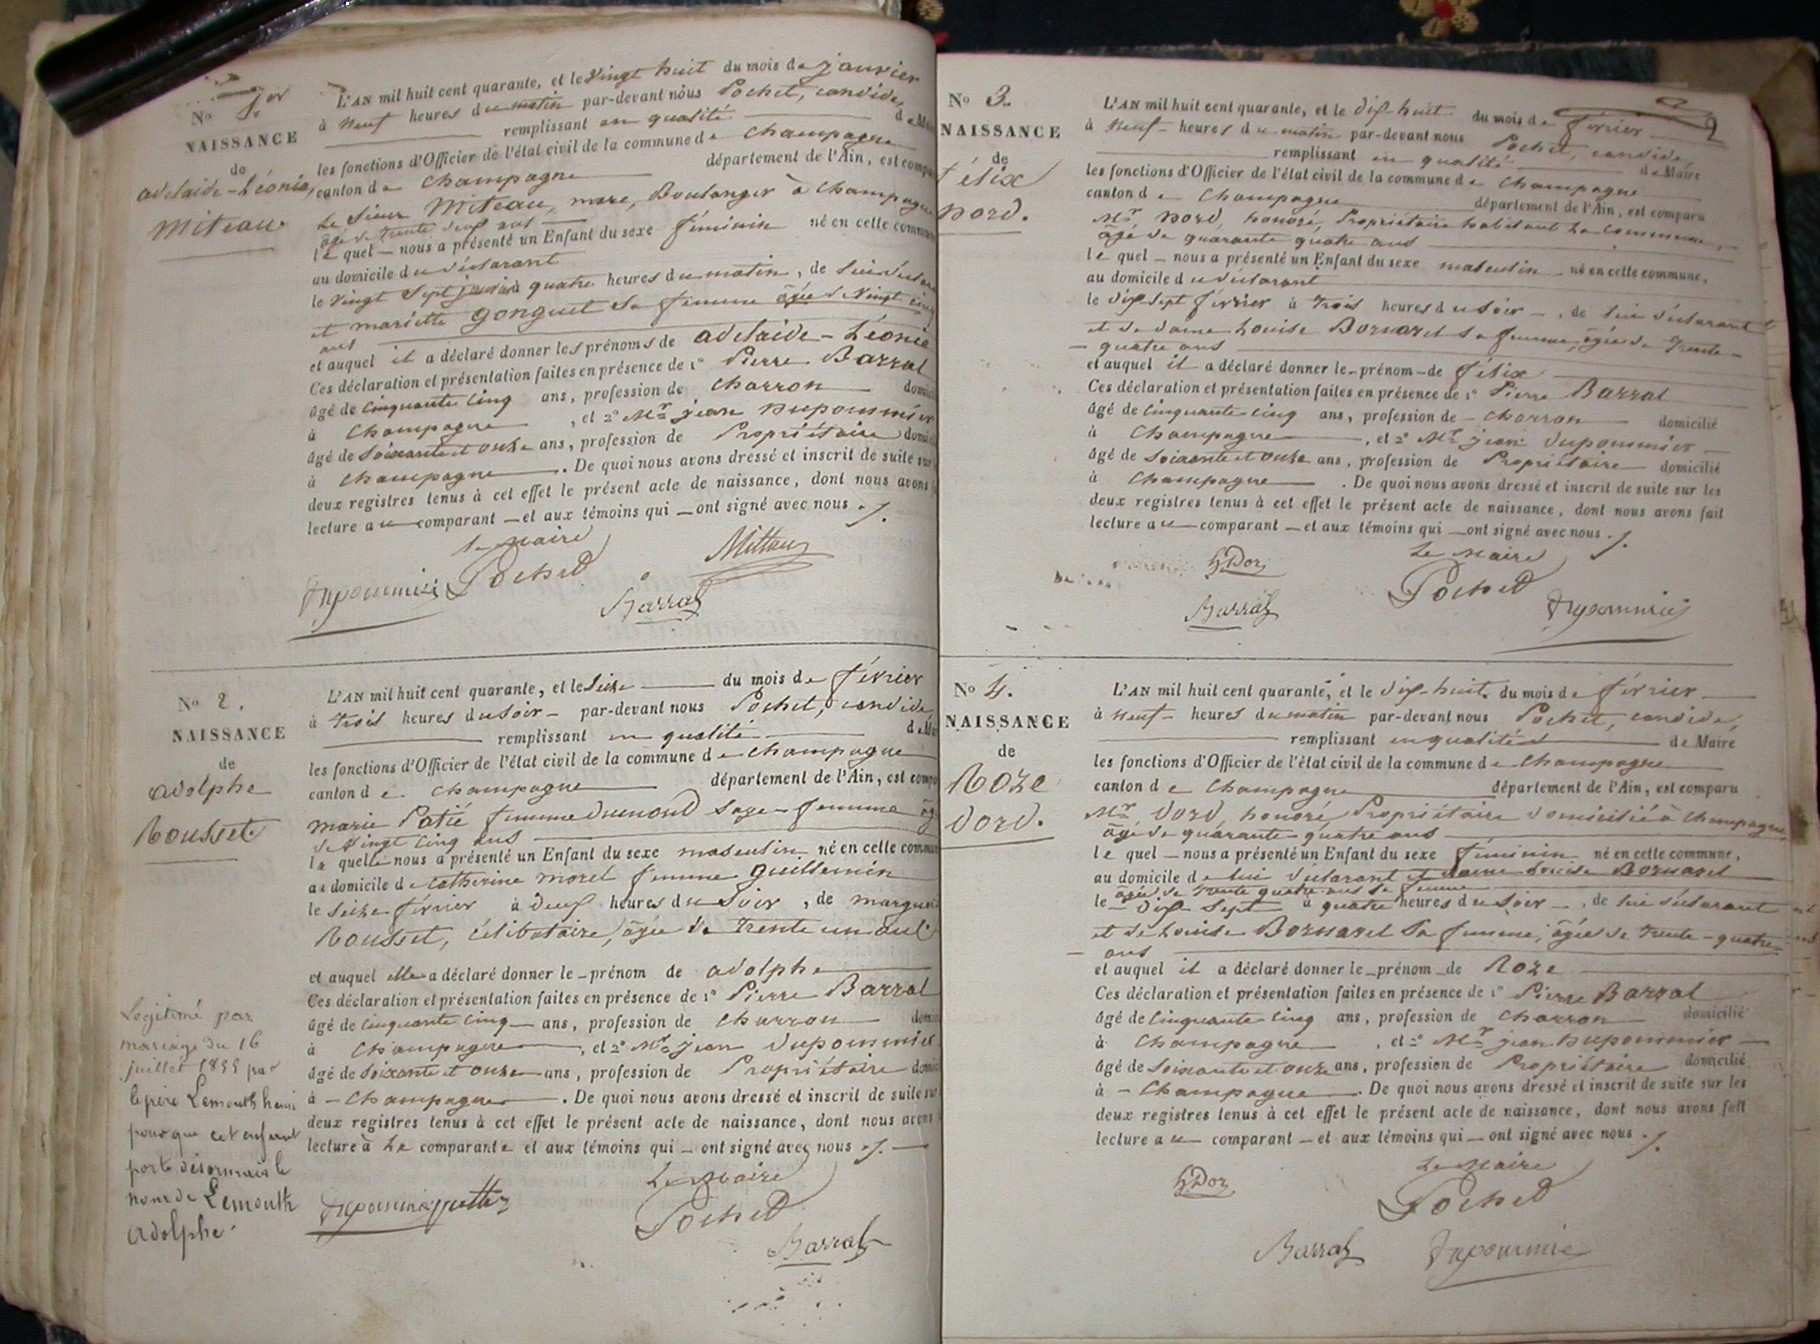 No 1er
NAISSANCE
de
adelaide-Léonie
Miteau.
L'AN mil huit cent quarante, et le Vingt huit du mois de janvier
à neuf heures du matin par-devant nous Pochet, candide,
remplissant en qualité de Mai
les fonctions d'Officier de l'état civil de la commune de Champagne
canton de Champagne département de l'Ain, est compa
Le Sieur Miteau, marc, Boulanger à Champagne
âgé de trente deux ans
lequel nous a présenté un Enfant du sexe féminin né en cette commune
au domicile du déclarant
le Vingt Sept janvier à quatre heures du matin, de lui déclarant
et mariette gonguet Sa femme âgée de Vingt cinq
ans
et auquel il a déclaré donner les prénoms de adelaide-Léonie
Ces déclaration et présentation faites en présence de 1° Pierre Barral
âgé de Cinquante Cinq ans, profession de charron domici
à Champagne, et 2° Mr jean Dupommier
âgé de Soixante et onze ans, profession de Propriétaire domici
à Champagne. De quoi nous avons dressé et inscrit de suite sur
deux registres tenus à cet effet le présent acte de naissance, dont nous avons
lecture au comparant et aux témoins qui ont signé avec nous ./.
Le Maire
Mittau
Dupommier Pochet
Barral
No 2.
NAISSANCE
de
adolphe
Rousset
L'AN mil huit cent quarante, et le Seize du mois de février
à trois heures du Soir par-devant nous Pochet, candide,
remplissant en qualité de Mai
les fonctions d'Officier de l'état civil de la commune de Champagne
canton de Champagne département de l'Ain, est compa
marie Patié femme Dumond Sage-femme âg
de Vingt Cinq ans
la quelle nous a présenté un Enfant du sexe masculin né en cette commun
au domicile de Catherine morel femme guillemin
le Seize février à Deux heures du Soir, de marguer
Rousset, Célibataire, âgée de trente un ans
et auquel elle a déclaré donner le prénom de adolphe
Ces déclaration et présentation faites en présence de 1° Pierre Barral
âgé de Cinquante Cinq ans, profession de Charron domi
à Champagne, et 2° Mr jean Dupommier
âgé de Soixante et onze ans, profession de Propriétaire domici
à Champagne. De quoi nous avons dressé et inscrit de suite sur
deux registres tenus à cet effet le présent acte de naissance, dont nous avons
lecture à La comparante et aux témoins qui ont signé avec nous ./.
Legitimé par
mariage du 16
juillet 1855 par
le père Lemouth henri
pour que cet enfant
porte désormais le
nom de Lemouth
Adolphe.
Le Maire
Dupommier
Pochet
Barral
No 3.
NAISSANCE
de
félix
Dord.
2
L'AN mil huit cent quarante, et le dix huit du mois de février
à neuf heures du matin par-devant nous Pochet, candide,
remplissant en qualité de Maire
les fonctions d'Officier de l'état civil de la commune de Champagne
canton de Champagne département de l'Ain, est comparu
Mr Dord, honoré, Propriétaire habitant La Commune,
âgé de quarante quatre ans
lequel nous a présenté un Enfant du sexe masculin né en cette commune,
au domicile du déclarant
le dix Sept février à trois heures du Soir, de lui déclarant
et de dame Louise Bornarel Sa femme, âgée de Trente-
quatre ans
et auquel il a déclaré donner le prénom de félix
Ces déclaration et présentation faites en présence de 1° Pierre Barral
âgé de Cinquante cinq ans, profession de charron domicilié
à Champagne, et 2° Mr jean Dupommier
âgé de Soixante et onze ans, profession de Propriétaire domicilié
à Champagne. De quoi nous avons dressé et inscrit de suite sur les
deux registres tenus à cet effet le présent acte de naissance, dont nous avons fait
lecture au comparant et aux témoins qui ont signé avec nous ./.
Le Maire
hDor
Pochet
Barral
Dupommier
No 4.
NAISSANCE
de
Roze
Dord.
L'AN mil huit cent quarante, et le dix-huit du mois de février
à neuf heures du matin par-devant nous Pochet, candide,
remplissant en qualité de Maire
les fonctions d'Officier de l'état civil de la commune de Champagne
canton de Champagne département de l'Ain, est comparu
Mr Dord, honoré, Propriétaire domicilié à Champagne
âgé de quarante quatre ans
lequel nous a présenté un Enfant du sexe féminin né en cette commune,
au domicile de lui déclarant et dame Louise Bornarel
âgée de trente quatre ans Sa femme
le dix Sept à quatre heures du Soir, de lui déclarant
et de Louise Bornarel Sa femme, âgée de trente-quatre
ans
et auquel il a déclaré donner le prénom de Roze
Ces déclaration et présentation faites en présence de 1° Pierre Barral
âgé de Cinquante Cinq ans, profession de Charron domicilié
à Champagne, et 2° Mr jean Dupommier
âgé de Soixante et onze ans, profession de Propriétaire domicilié
à Champagne. De quoi nous avons dressé et inscrit de suite sur les
deux registres tenus à cet effet le présent acte de naissance, dont nous avons fait
lecture au comparant et aux témoins qui ont signé avec nous ./.
Le Maire
hDor
Pochet
Barral
Dupommier